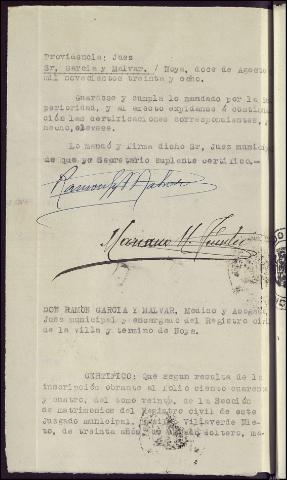 Providencia: Juez
Sr. García y Malvar. / Noya, doce de Agosto
mil novecientos treinta y ocho.
Guardese y cumpla lo mandado por la Su-
perioridad, y al efecto expidanse á continua-
ción las certificaciones correspondientes, y
hecho, elevese.
Lo mandó y firma dicho Sr. Juez munici
de que yo Secretario suplente certifico.-
Ramon G y Malvar
Mariano
DON RAMÓN GARCIA Y MALVAR, Medico y Abogado,
Juez municipal y encargado del Registro civil
de la Villa y termino de Noya.
CERTIFICO: Que segun resulta de la
inscripción obrante al folio ciento cuarenta
y cuatro, del tomo veinte, de la Sección
de matrimonios del Registro civil de este
Juzgado municipal, Villaverde Nie-
to, de treinta años, de soltero, na-